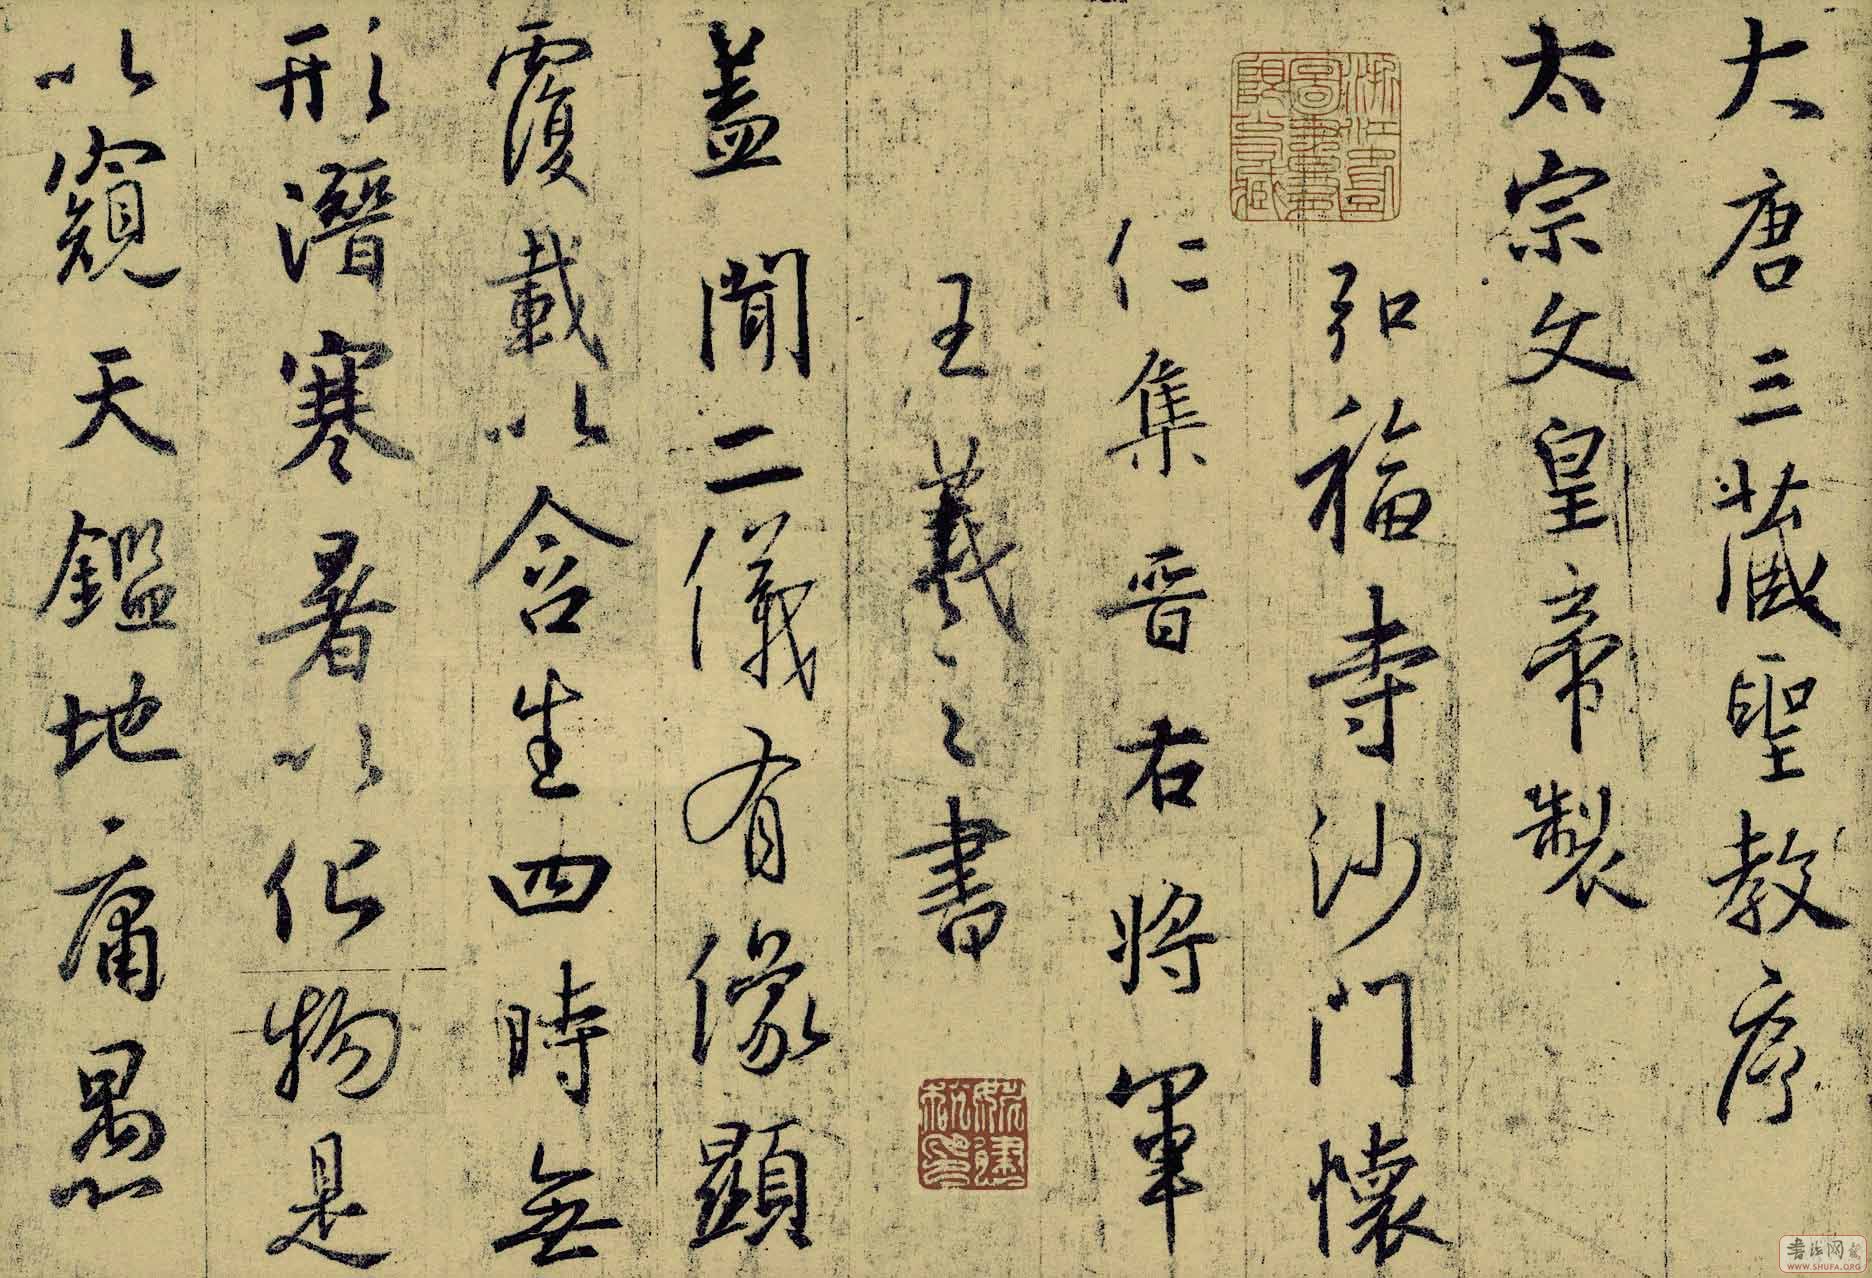 大唐三藏聖教序
太宗文皇帝製
弘福寺沙門懷
仁集晉右將軍
王羲之書
蓋聞二儀有像顯
覆載以含生四時無
形潛寒暑以化物是
以窺天鑑地庸愚
書法网
WWW.SHUFA.ORG